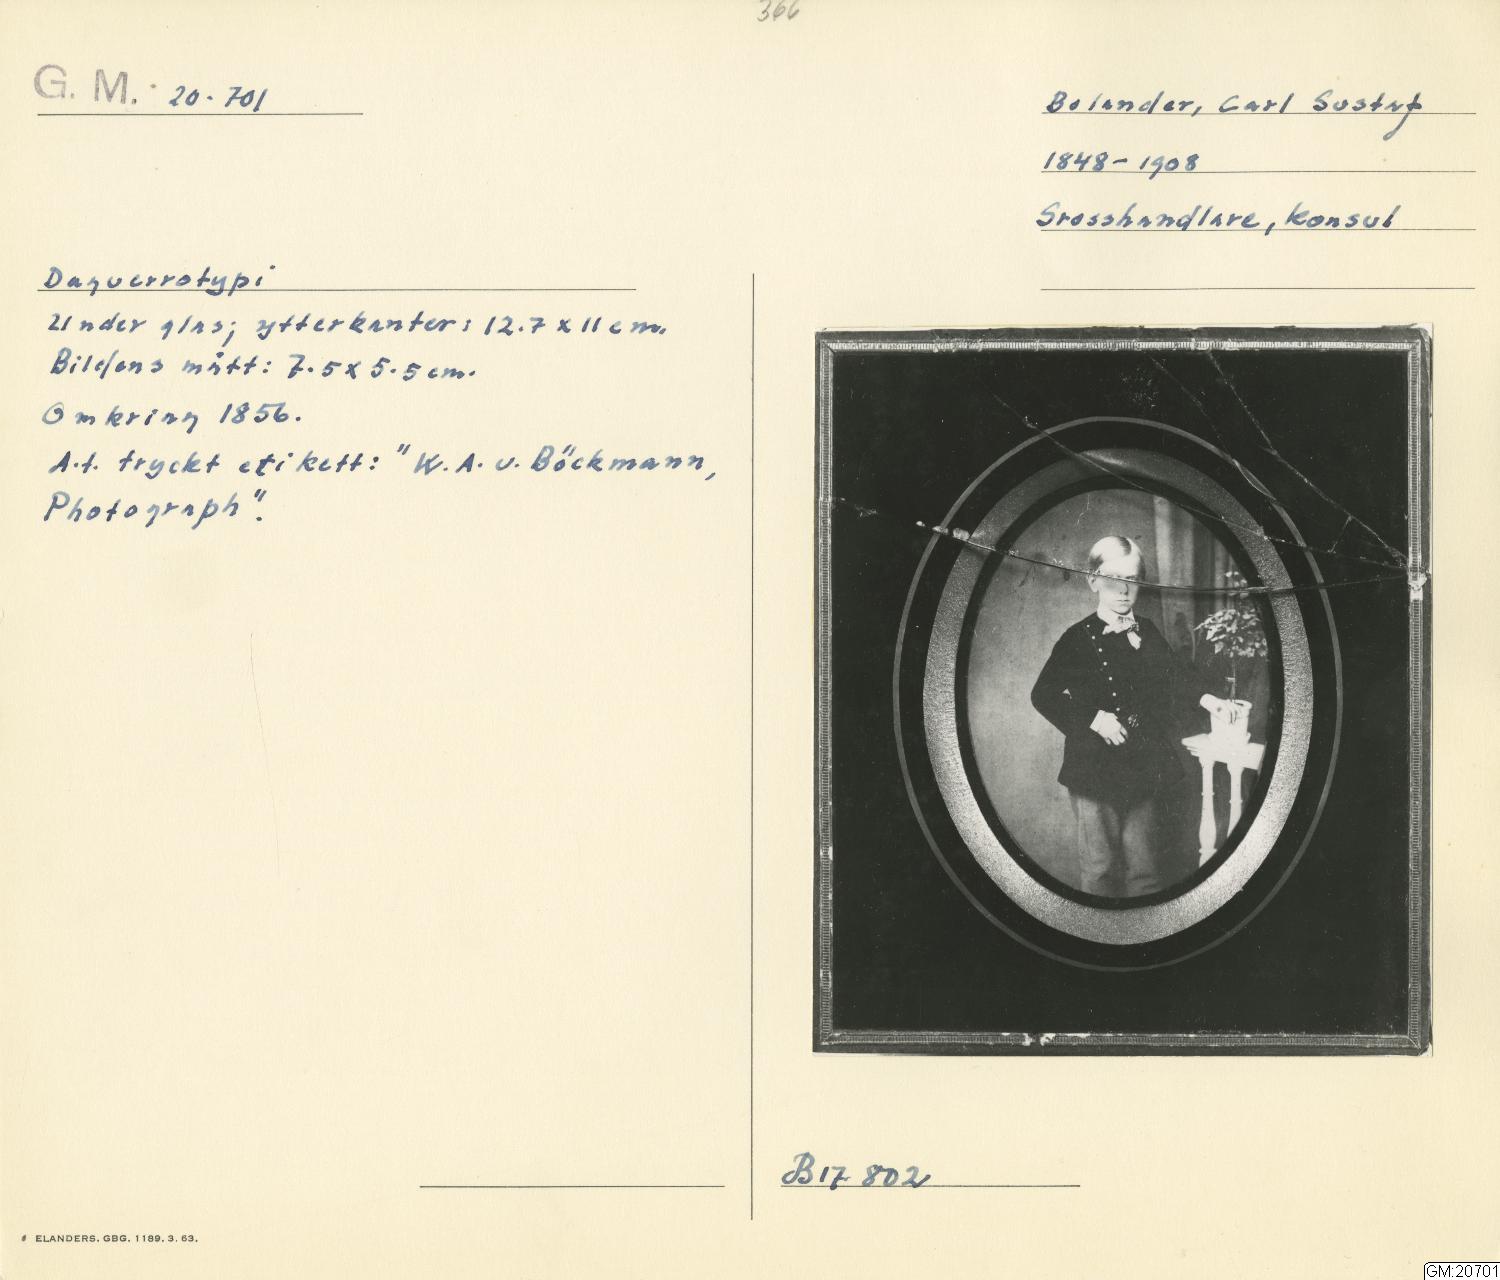 366
G. M. 20.701
Bolander, Carl Gustaf
1848-1908
Grosshandlare, konsul
Daguerrotypi
Under glas; ytterkanter: 12.7 x 11 cm.
Bildens mått: 7.5 x 5.5 cm.
Omkring 1856.
A.t. tryckt etikett: "K. A. v. Böckmann,
Photograph".
B17 802
ELANDERS. GBG. 1189. 3. 63.
GM:20701